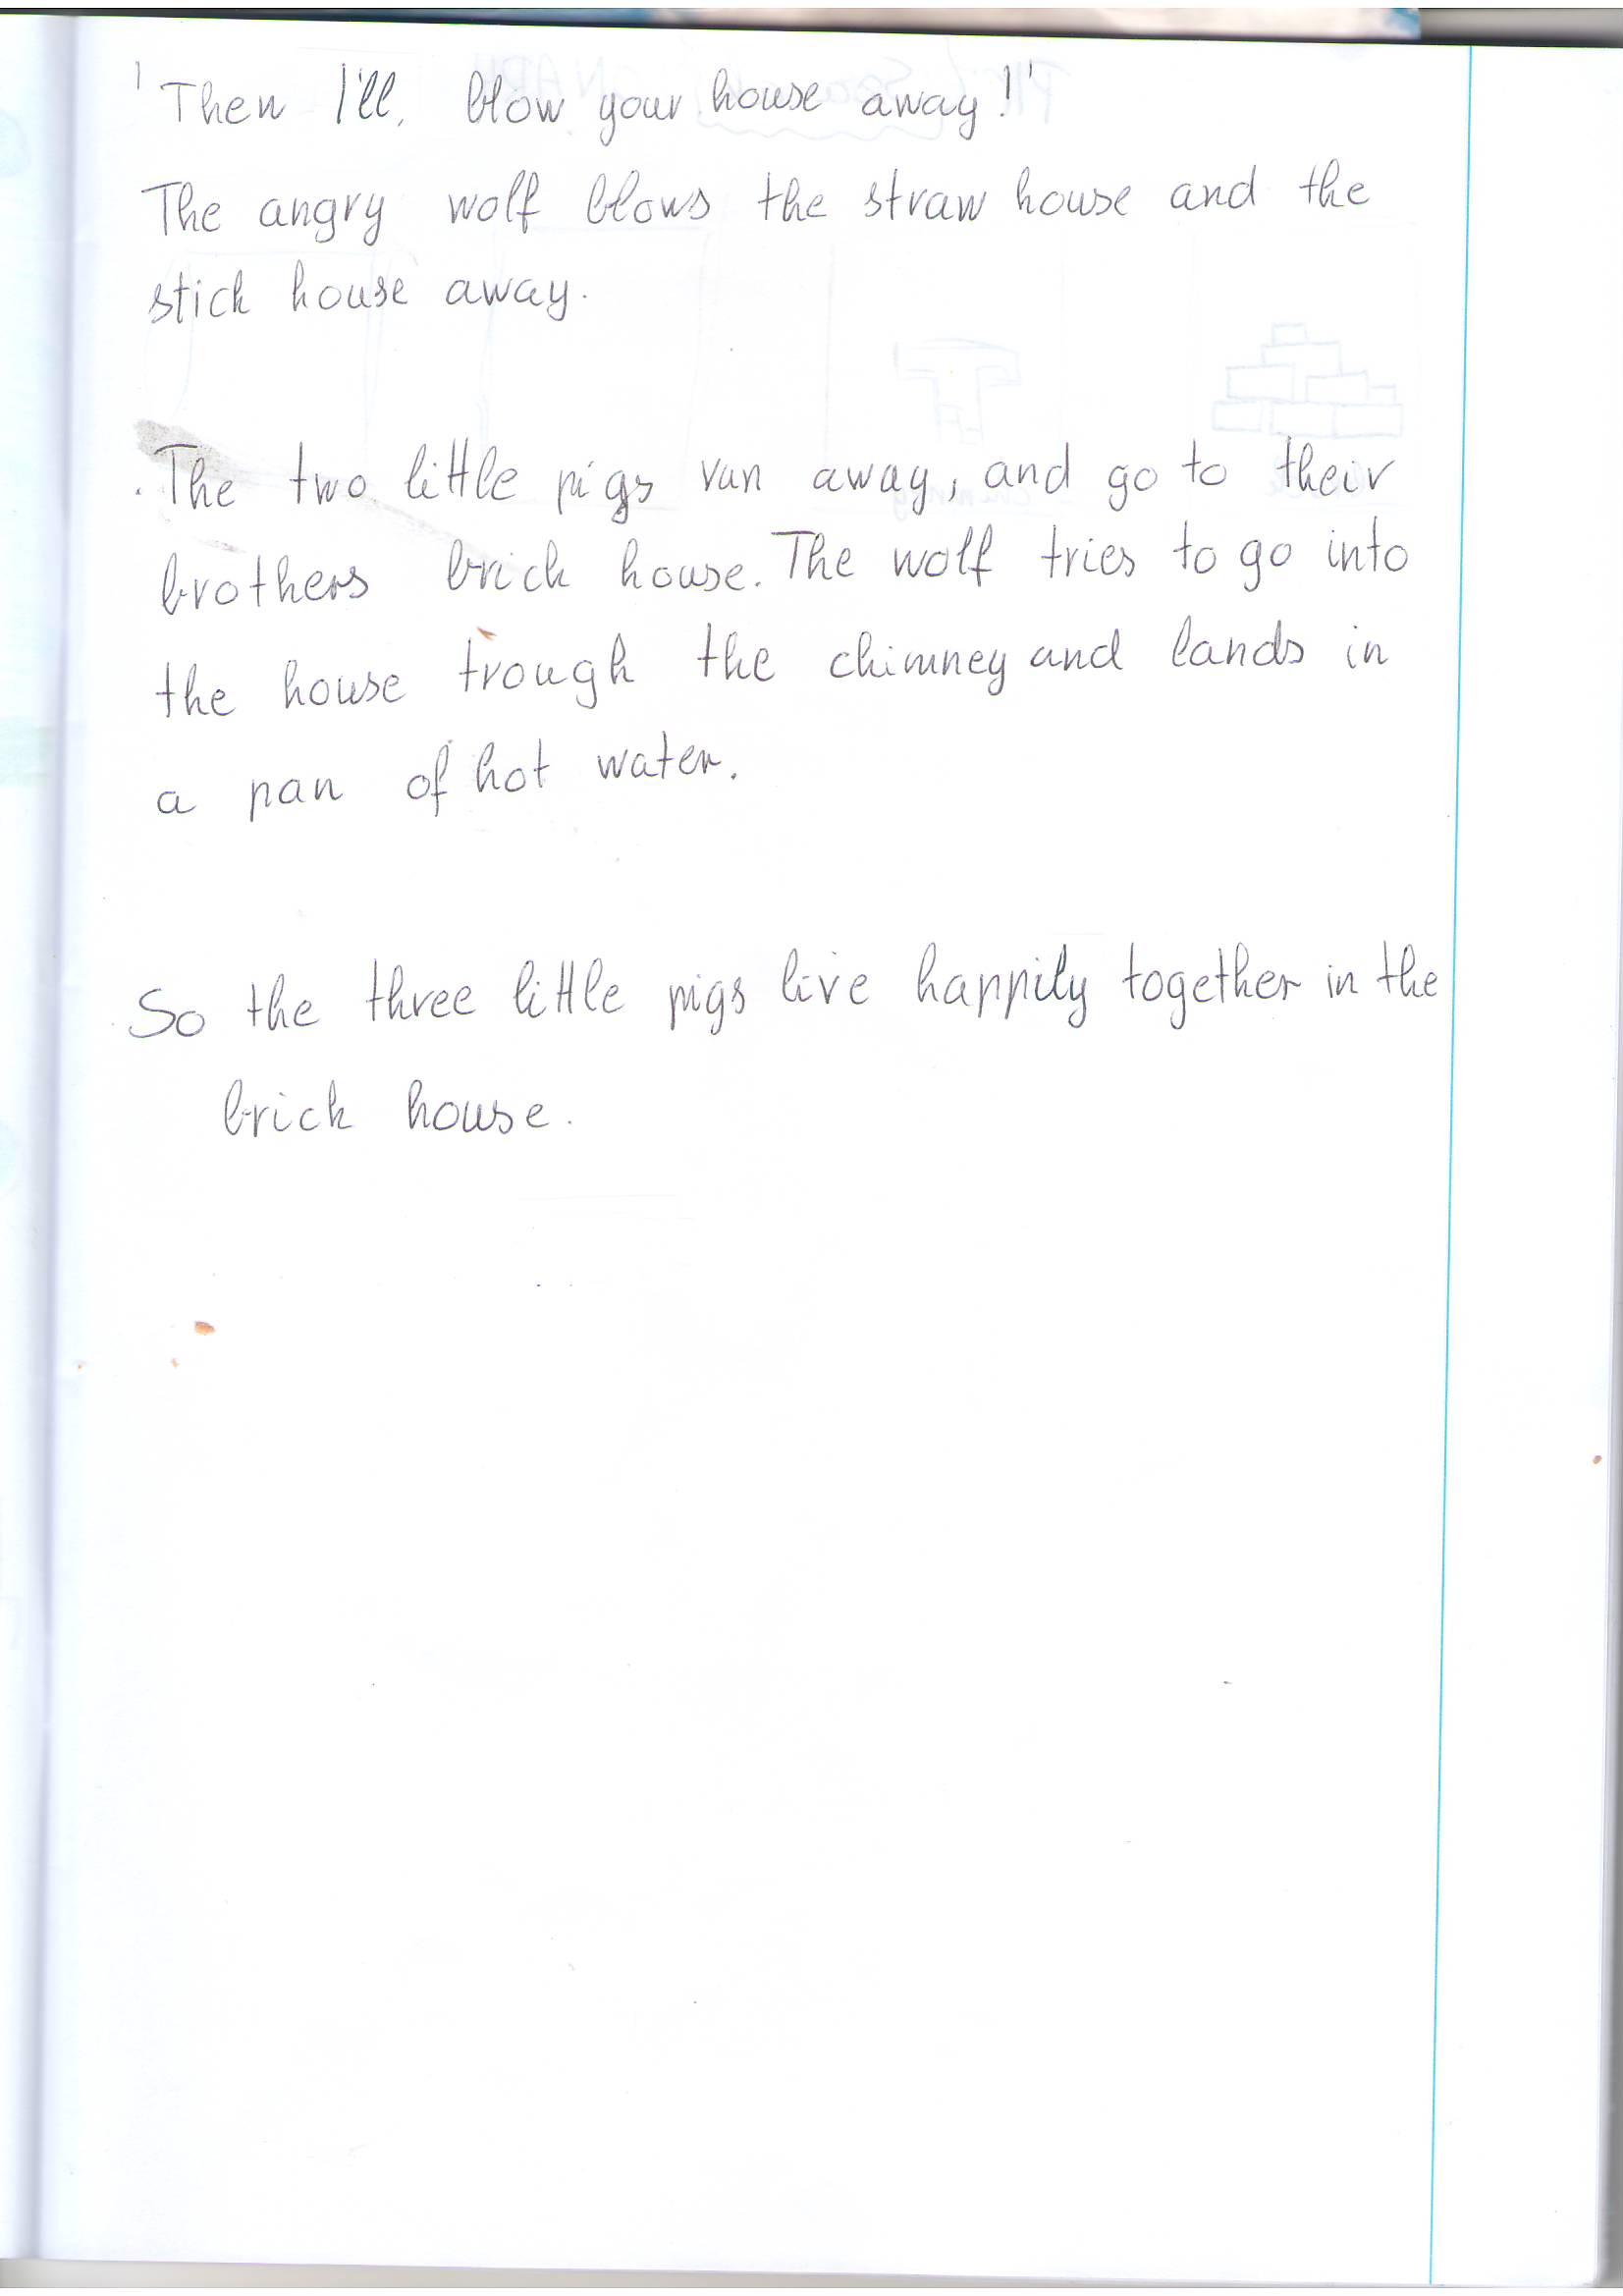 'Then I'll, blow your house away!'
The angry wolf blows the straw house and the
stick house away.
The two little pigs run away, and go to their
brothers brick house. The wolf tries to go into
the house trough the chimney and lands in
a pan of hot water.
So the three little pigs live happily together in the
brick house.